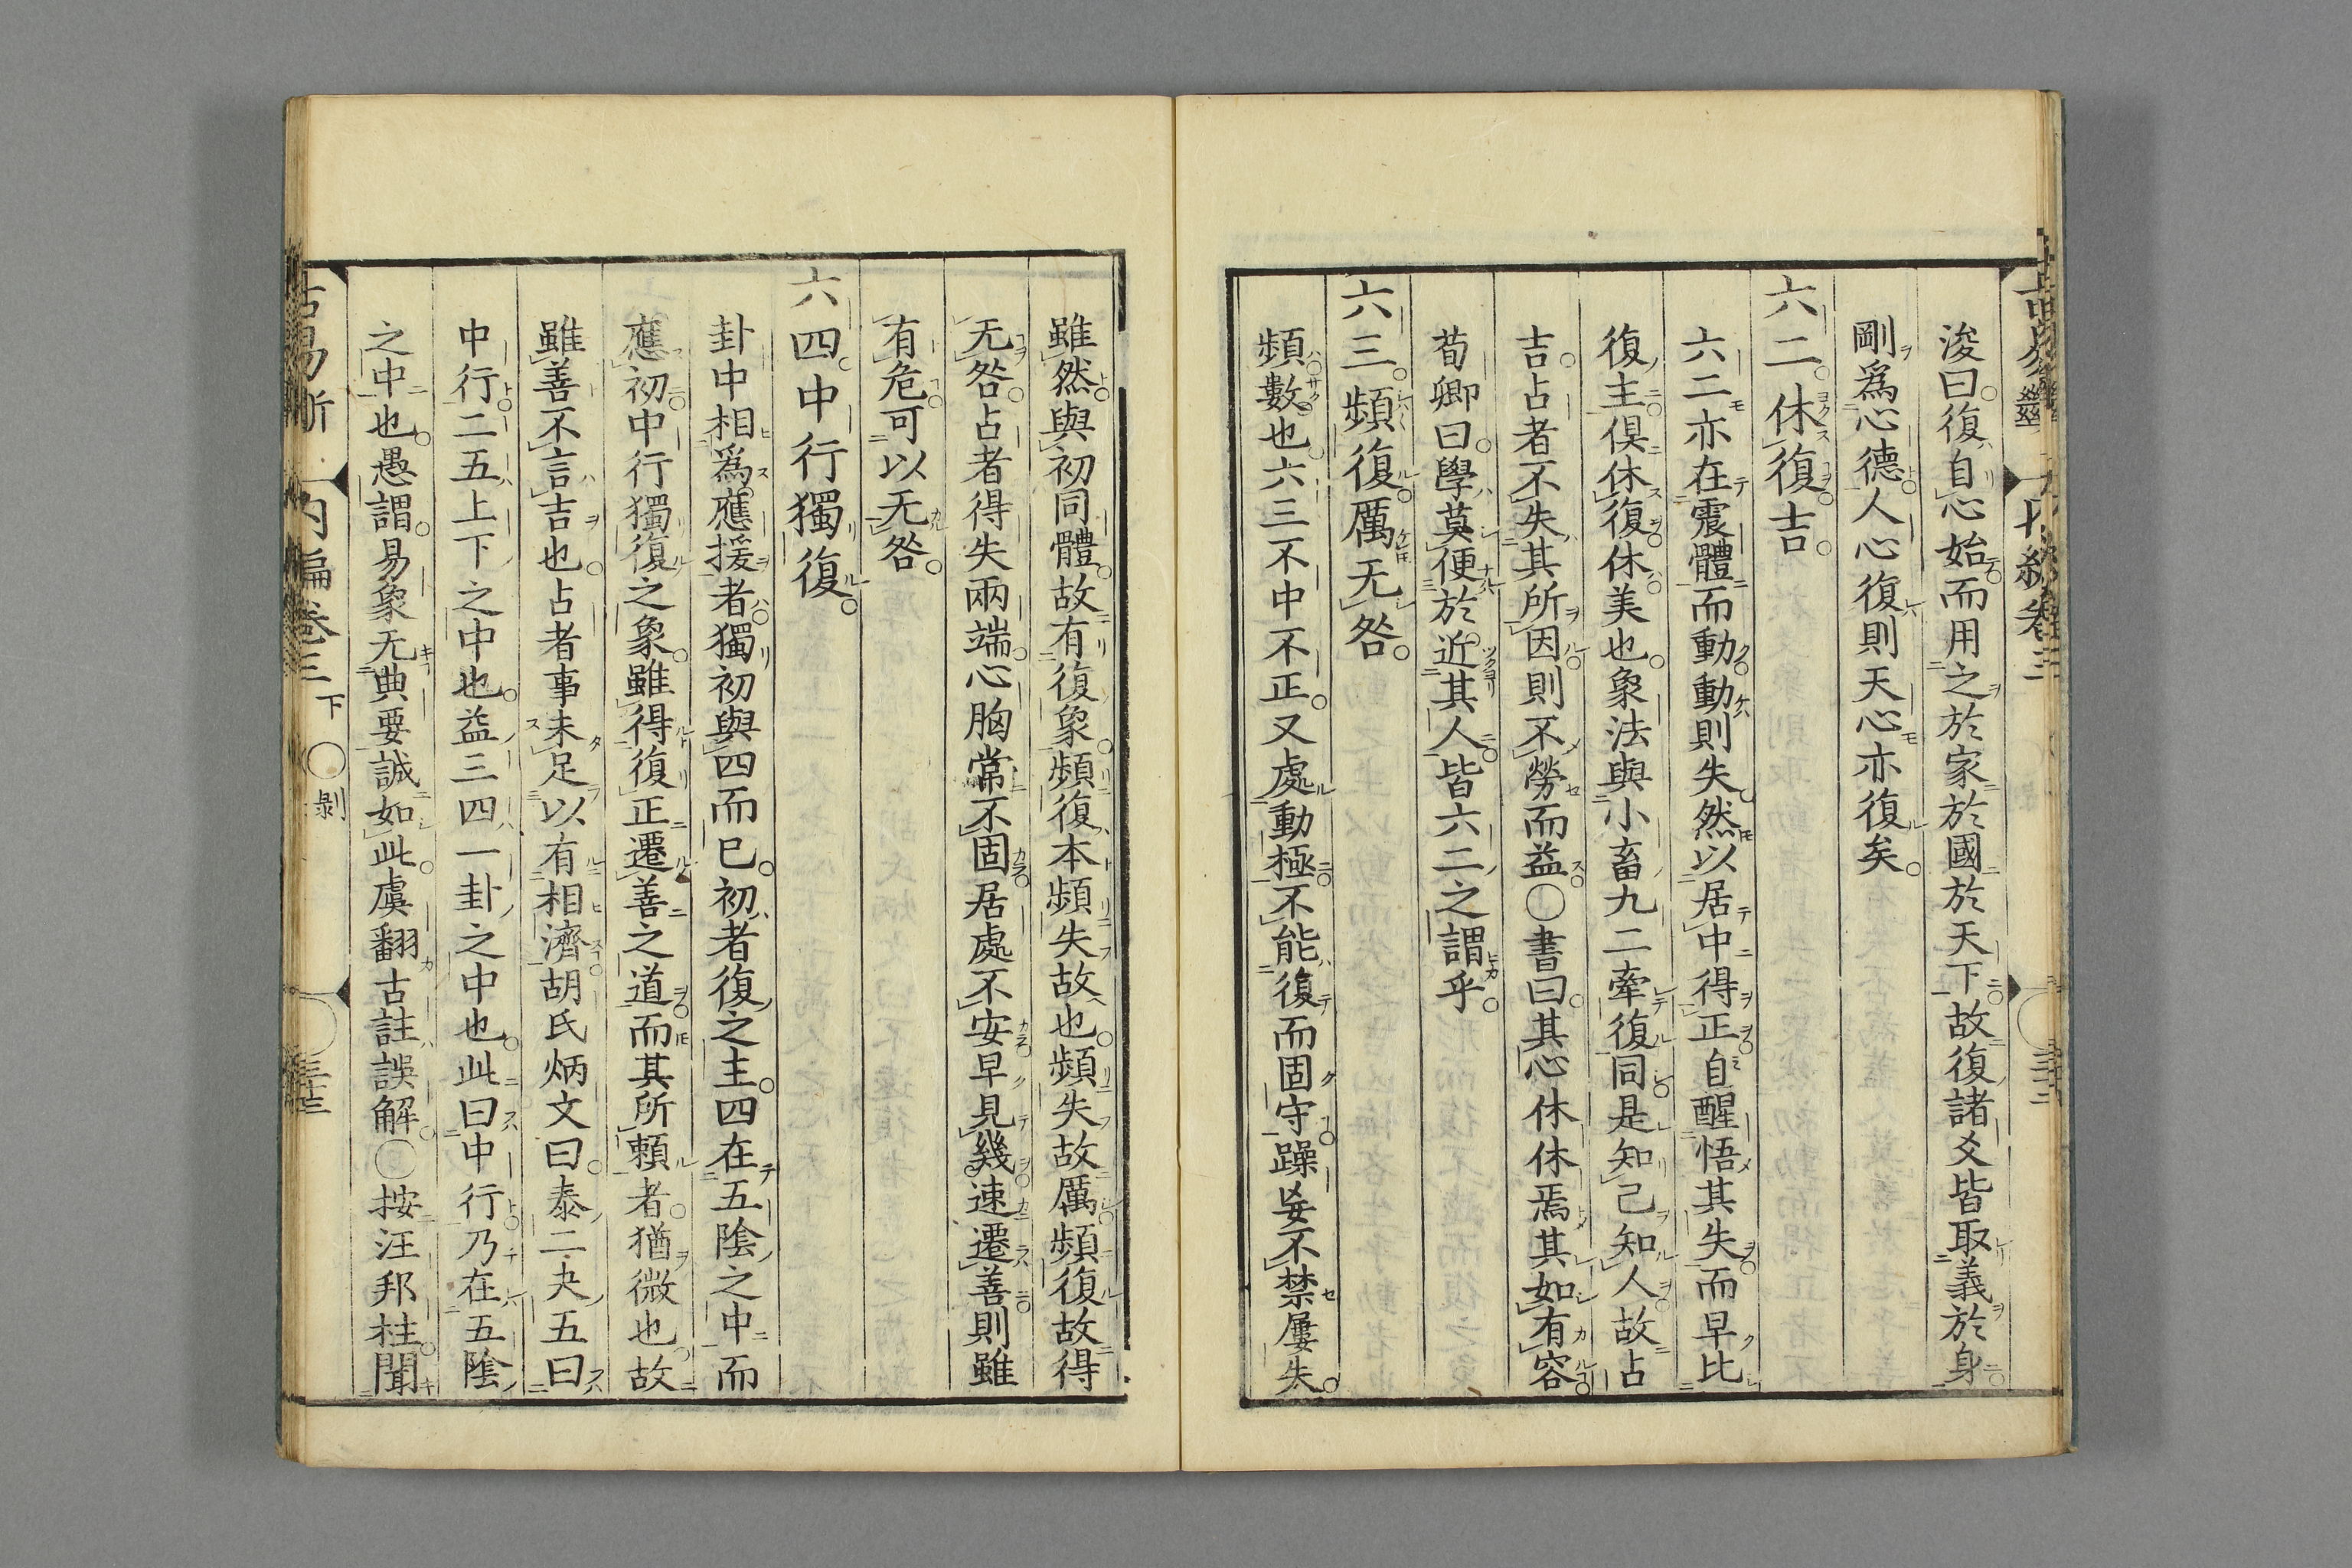 浚曰復自心始而用之於家於國於天下故復諸爻皆取義於身
剛爲心德人心復則天心亦復矣
六二休復吉
六二亦在震體而動動則失然以居中得正自醒悟其失而早比
復主俱休復休美也象法與小畜九二牽復同是知己知人故占
吉占者不失其所因則不勞而益○書曰其心休休焉其如有容
荀卿曰學莫便於近其人皆六二之謂乎
六三頻復厲无咎
頻數也六三不中不正又處動極不能復而固守躁妄不禁屢失
雖然與初同體故有復象頻復本頻失故也頻失故厲頻復故得
无咎占者得失兩端心胸常不固居處不安早見幾速遷善則雖
有危可以无咎
六四中行獨復
卦中相爲應援者獨初與四而已初者復之主四在五陰之中而
應初中行獨復之象雖得復正遷善之道而其所賴者猶微也故
雖善不言吉也占者事未足以有相濟胡氏炳文曰泰二夬五曰
中行二五上下之中也益三四一卦之中也此曰中行乃在五陰
之中也愚謂易象无典要誠如此虞翻古註誤解○按汪邦柱聞
古易斷 内編卷三下 ○剝 三十三